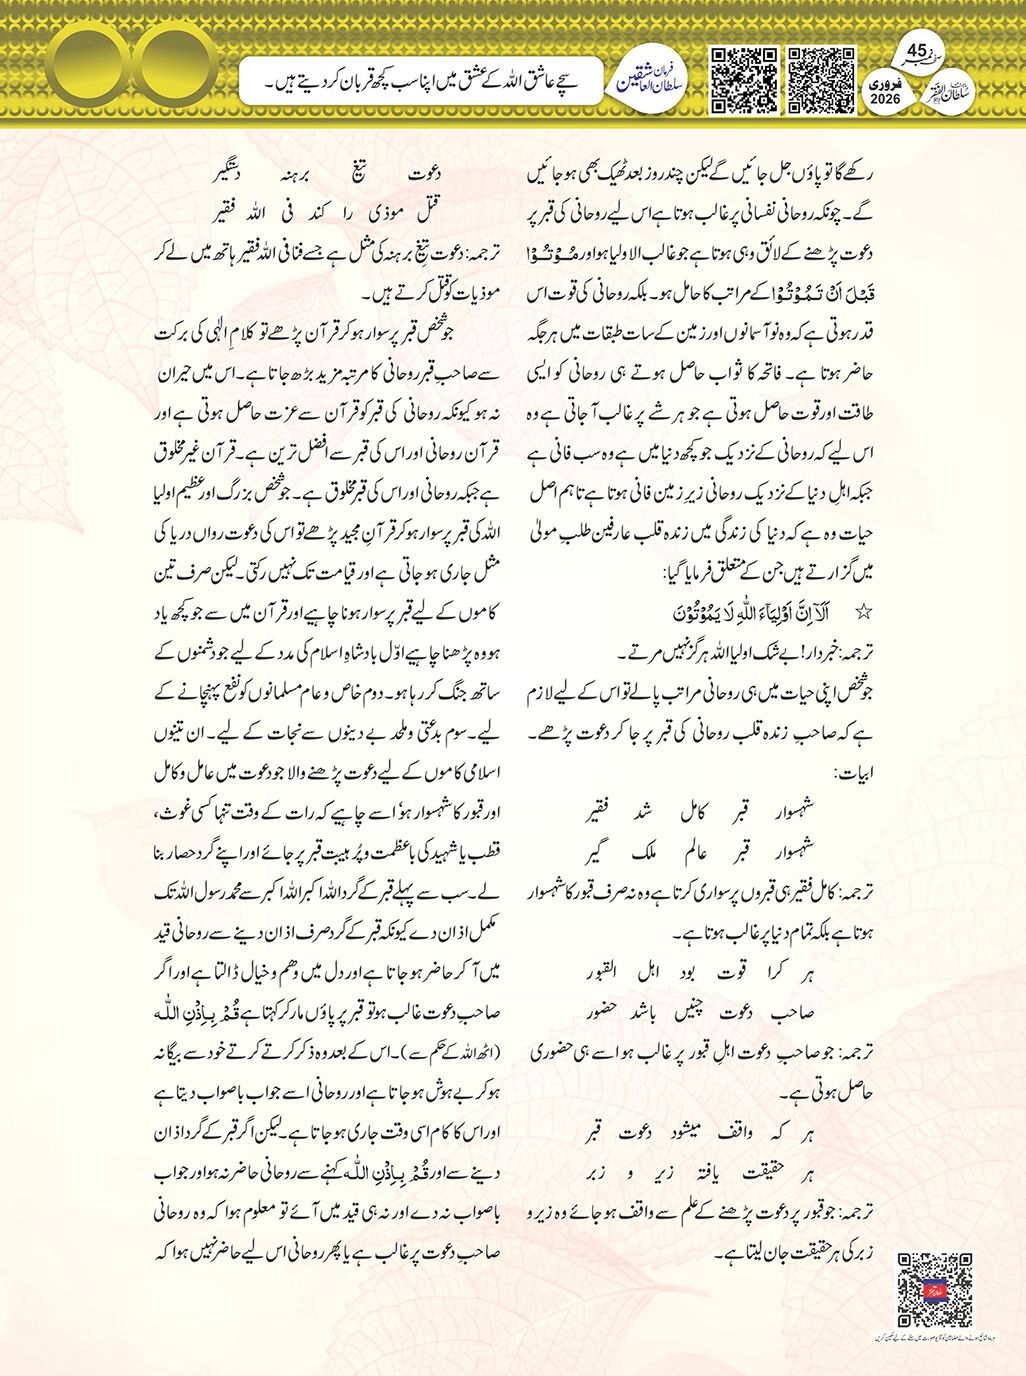 صفحہ نمبر 45
ماہنامہ سلطان الفقر لاہور
فروری
2026
فرمان سلطان العاشقین
سچے عاشق اللہ کے عشق میں اپنا سب کچھ قربان کر دیتے ہیں۔
رکھے گا تو پاؤں جل جائیں گے لیکن چند روز بعد ٹھیک بھی ہو جائیں
گے۔ چونکہ روحانی نفسانی پر غالب ہوتا ہے اس لیے روحانی کی قبر پر
دعوت پڑھنے کے لائق وہی ہوتا ہے جو غالب الاولیا ہو اور مُوْتُوْا
قَبْلَ اَنْ تَمُوْتُوْا کے مراتب کا حامل ہو۔ بلکہ روحانی کی قوت اس
قدر ہوتی ہے کہ وہ نو آسمانوں اور زمین کے سات طبقات میں ہر جگہ
حاضر ہوتا ہے۔ فاتحہ کا ثواب حاصل ہوتے ہی روحانی کو ایسی
طاقت اور قوت حاصل ہوتی ہے جو ہر شے پر غالب آ جاتی ہے وہ
اس لیے کہ روحانی کے نزدیک جو کچھ دنیا میں ہے وہ سب فانی ہے
جبکہ اہلِ دنیا کے نزدیک روحانی زیرِ زمین فانی ہوتا ہے تاہم اصل
حیات وہ ہے کہ دنیا کی زندگی میں زندہ قلب عارفین طلبِ مولیٰ
میں گزارتے ہیں جن کے متعلق فرمایا گیا:
☆ اَلَآ اِنَّ اَوْلِیَآءَ اللّٰہِ لَا یَمُوْتُوْنَ
ترجمہ: خبردار! بے شک اولیا اللہ ہرگز نہیں مرتے۔
جو شخص اپنی حیات میں ہی روحانی مراتب پا لے تو اس کے لیے لازم
ہے کہ صاحبِ زندہ قلب روحانی کی قبر پر جا کر دعوت پڑھے۔
ابیات:
شہسوار قبر کامل شد فقیر
شہسوار قبر عالم ملک گیر
ترجمہ: کامل فقیر ہی قبروں پر سواری کرتا ہے وہ نہ صرف قبور کا شہسوار
ہوتا ہے بلکہ تمام دنیا پر غالب ہوتا ہے۔
ہر کرا قوت بود اہل القبور
صاحب دعوت چنیں باشد حضور
ترجمہ: جو صاحبِ دعوت اہلِ قبور پر غالب ہو اسے ہی حضوری
حاصل ہوتی ہے۔
ہر کہ واقف میشود دعوت قبر
ہر حقیقت یافتہ زیر و زبر
ترجمہ: جو قبور پر دعوت پڑھنے کے علم سے واقف ہو جائے وہ زیر و
زبر کی ہر حقیقت جان لیتا ہے۔
دعوت تیغ برہنہ دستگیر
قتل موذی را کند فی اللہ فقیر
ترجمہ: دعوت تیغِ برہنہ کی مثل ہے جسے فنا فی اللہ فقیر ہاتھ میں لے کر
موذیات کو قتل کرتے ہیں۔
جو شخص قبر پر سوار ہو کر قرآن پڑھے تو کلامِ الٰہی کی برکت
سے صاحبِ قبر روحانی کا مرتبہ مزید بڑھ جاتا ہے۔ اس میں حیران
نہ ہو کیونکہ روحانی کی قبر کو قرآن سے عزت حاصل ہوتی ہے اور
قرآن روحانی اور اس کی قبر سے افضل ترین ہے۔ قرآن غیر مخلوق
ہے جبکہ روحانی اور اس کی قبر مخلوق ہے۔ جو شخص بزرگ اور عظیم اولیا
اللہ کی قبر پر سوار ہو کر قرآنِ مجید پڑھے تو اس کی دعوت رواں دریا کی
مثل جاری ہو جاتی ہے اور قیامت تک نہیں رکتی۔ لیکن صرف تین
کاموں کے لیے قبر پر سوار ہونا چاہیے اور قرآن میں سے جو کچھ یاد
ہو وہ پڑھنا چاہیے اوّل بادشاہِ اسلام کی مدد کے لیے جو دشمنوں کے
ساتھ جنگ کر رہا ہو۔ دوم خاص و عام مسلمانوں کو نفع پہنچانے کے
لیے۔ سوم بدعتی و ملحد بے دینوں سے نجات کے لیے۔ ان تینوں
اسلامی کاموں کے لیے دعوت پڑھنے والا جو دعوت میں عامل و کامل
اور قبور کا شہسوار ہو‘ اسے چاہیے کہ رات کے وقت تنہا کسی غوث،
قطب یا شہید کی باعظمت و پُرہیبت قبر پر جائے اور اپنے گرد حصار بنا
لے۔ سب سے پہلے قبر کے گرد اللہ اکبر اللہ اکبر سے محمد رسول اللہ تک
مکمل اذان دے کیونکہ قبر کے گرد صرف اذان دینے سے روحانی قید
میں آ کر حاضر ہو جاتا ہے اور دل میں وھم و خیال ڈالتا ہے اور اگر
صاحبِ دعوت غالب ہو تو قبر پر پاؤں مار کر کہتا ہے قُمْ بِاِذْنِ اللّٰہ
(اٹھ اللہ کے حکم سے)۔ اس کے بعد وہ ذکر کرتے کرتے خود سے بیگانہ
ہو کر بے ہوش ہو جاتا ہے اور روحانی اسے جواب باصواب دیتا ہے
اور اس کا کام اسی وقت جاری ہو جاتا ہے۔ لیکن اگر قبر کے گرد اذان
دینے سے اور قُمْ بِاِذْنِ اللّٰہ کہنے سے روحانی حاضر نہ ہو اور جواب
باصواب نہ دے اور نہ ہی قید میں آئے تو معلوم ہوا کہ وہ روحانی
صاحبِ دعوت پر غالب ہے یا پھر روحانی اس لیے حاضر نہیں ہوا کہ